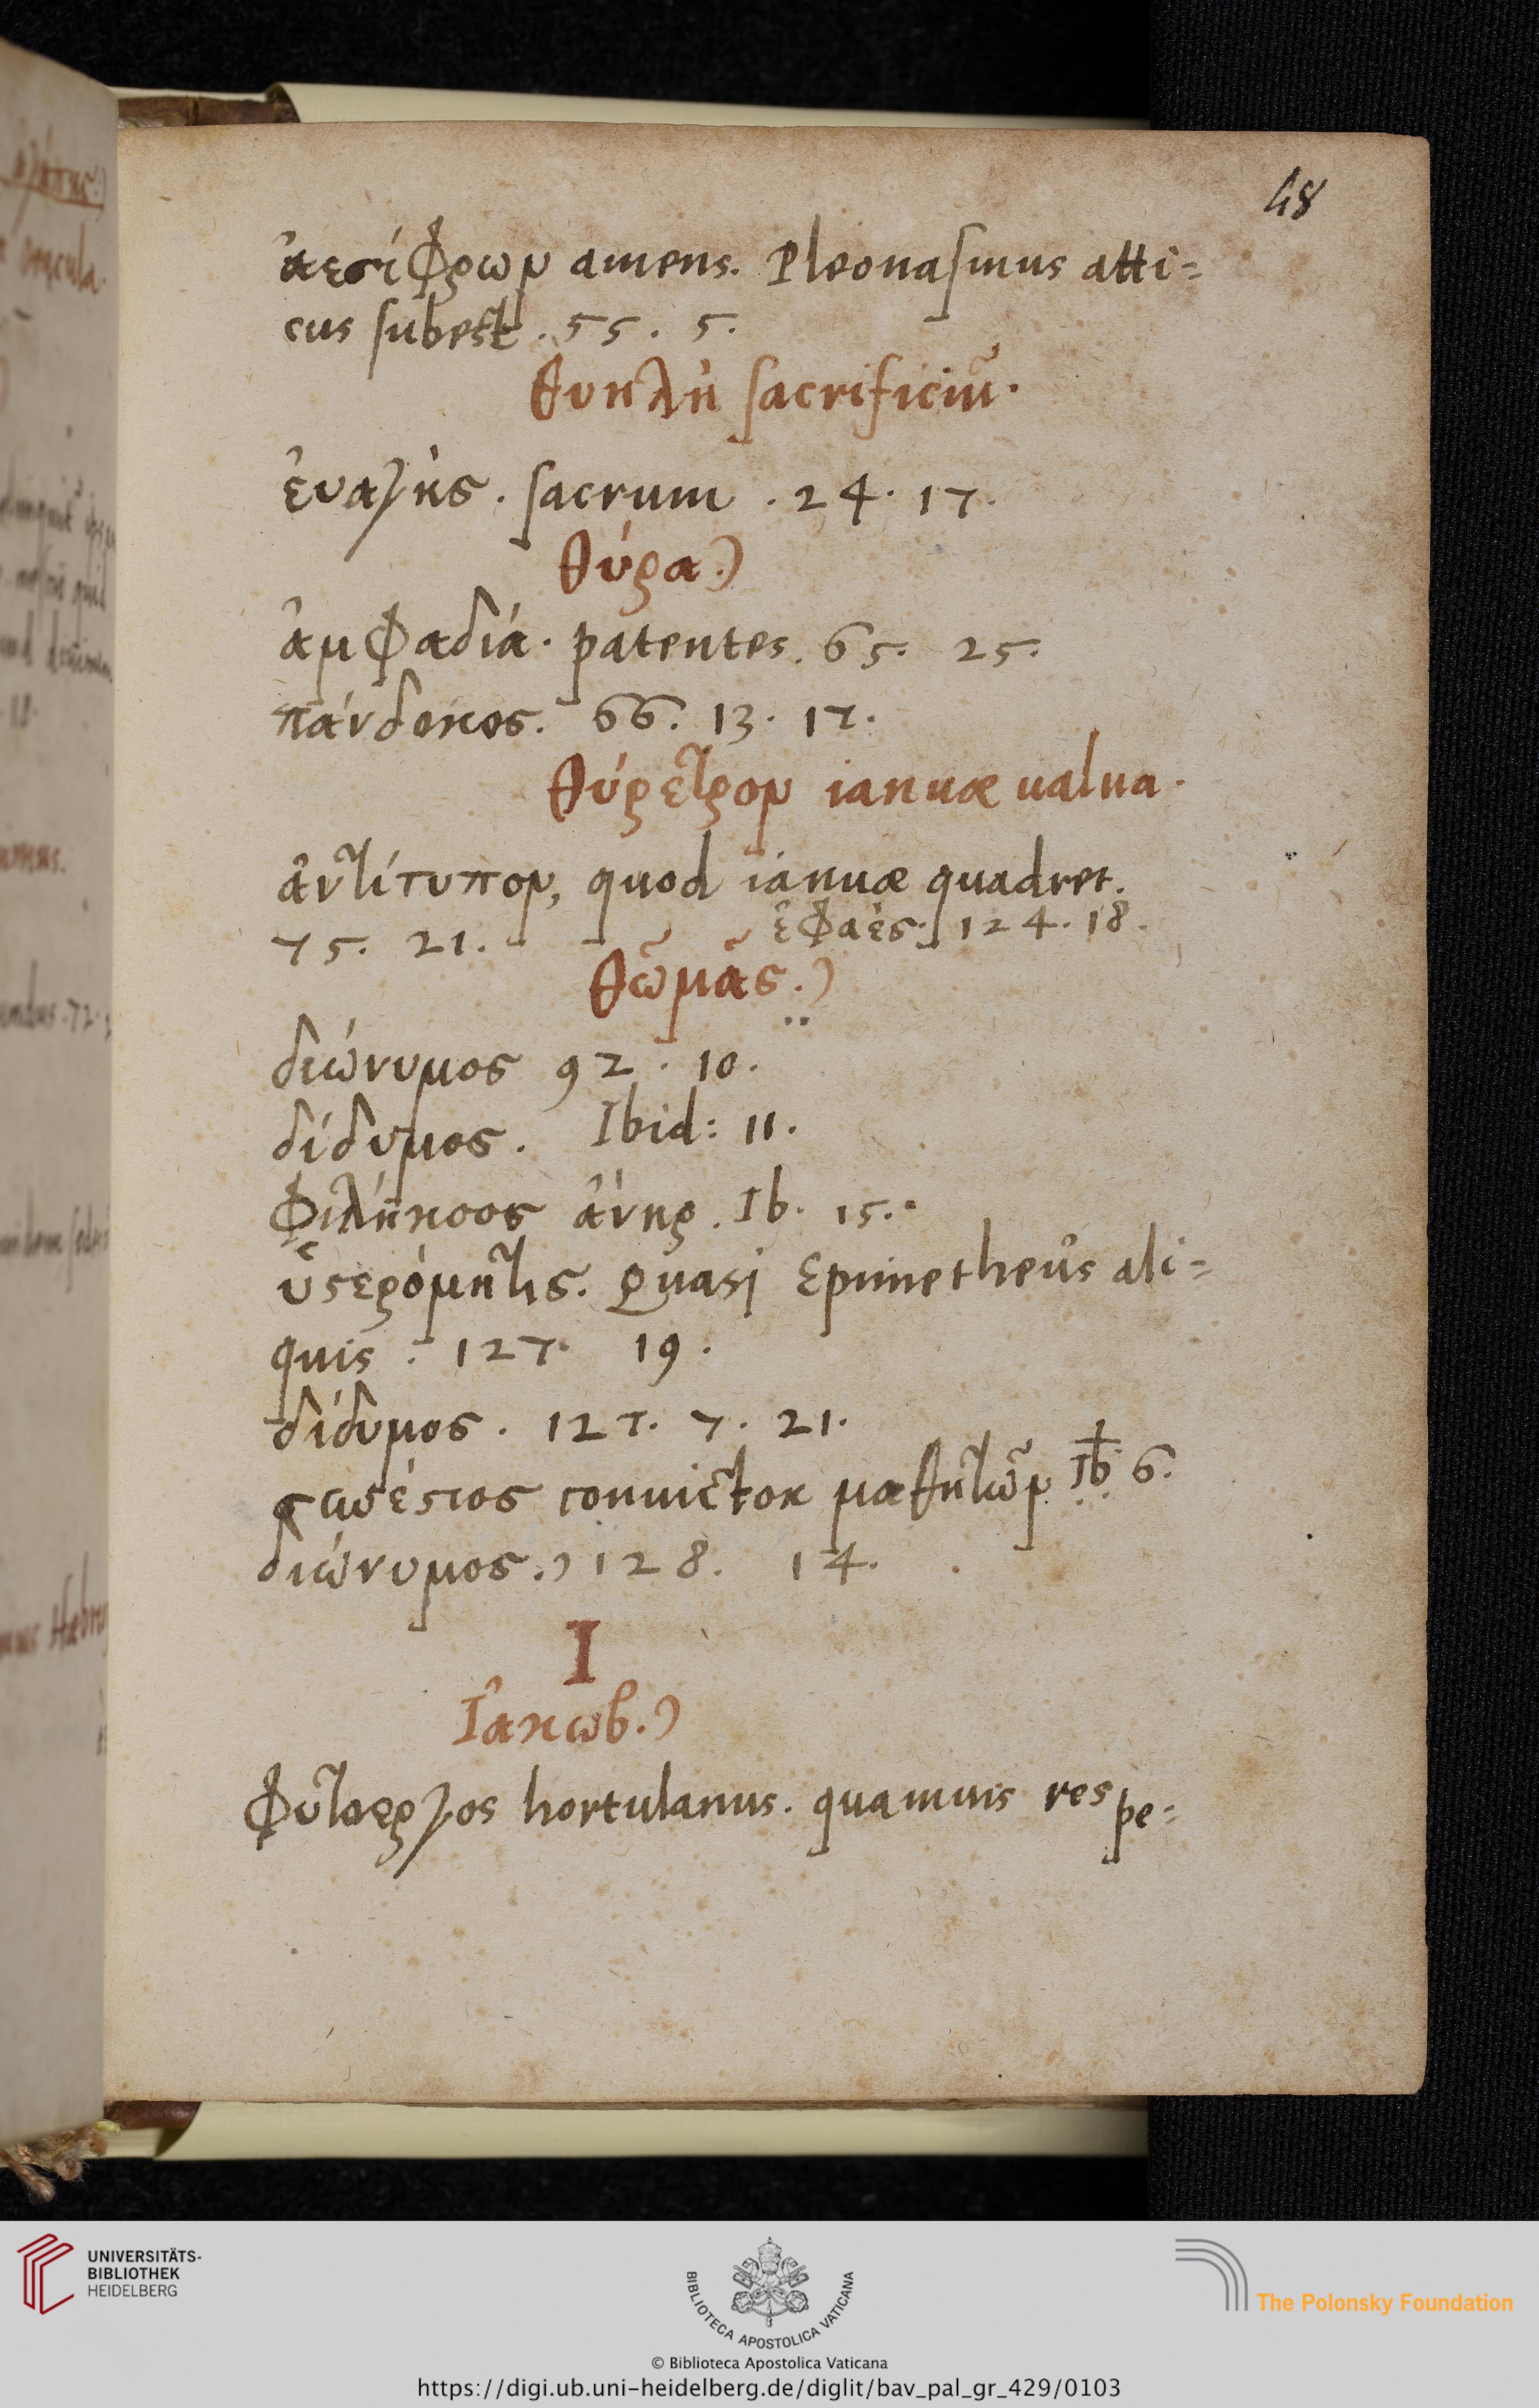 48
ἀεσίφρων amens. Pleonasmus atti=
cus subest. 55. 5.
θυηλὴ sacrificiũ.
ἐυαγὴς. sacrum. 24. 17.
θύρα.)
ἀμφαδιά. patentes. 65. 25.
πάνδοκος. 66. 13. 17.
θύρετρον ianuæ ualua.
ἀντίτυπον, quod ianuæ quadret.
75. 21. ἐφαὲς. 124. 18.
θῶμᾶς.)
διώνυμος 92. 10.
δίδυμος. Ibid: 11.
φιλήκοος ἀνὴρ. Ib. 15.
ὑστερόμητις. Quasi Epimetheus ali=
quis. 127. 19.
δίδυμος. 127. 7. 21.
συνέστιος conuictor μαθητῶν. Ib 6.
διώνυμος.) 128. 14.
I
Ἰακωβ.)
φυτοεργος hortulanus. quamuis respe=
UNIVERSITÄTS-
BIBLIOTHEK
HEIDELBERG
BIBLIOTECA APOSTOLICA VATICANA
The Polonsky Foundation
© Biblioteca Apostolica Vaticana
https://digi.ub.uni-heidelberg.de/diglit/bav_pal_gr_429/0103